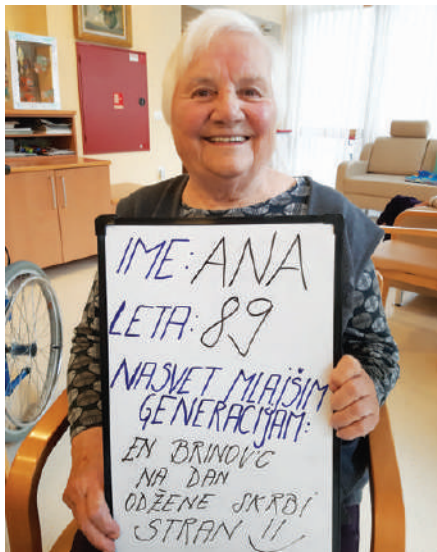 IME: ANA
LETA: 89
NASVET MLAJŠIM
GENERACIJAM:
EN BRINOVC
NA DAN
ODŽENE SKRBI
STRAN !!